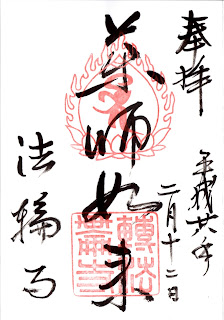 奉拝
平成廿六年
二月十二日
薬師如来
法輪寺